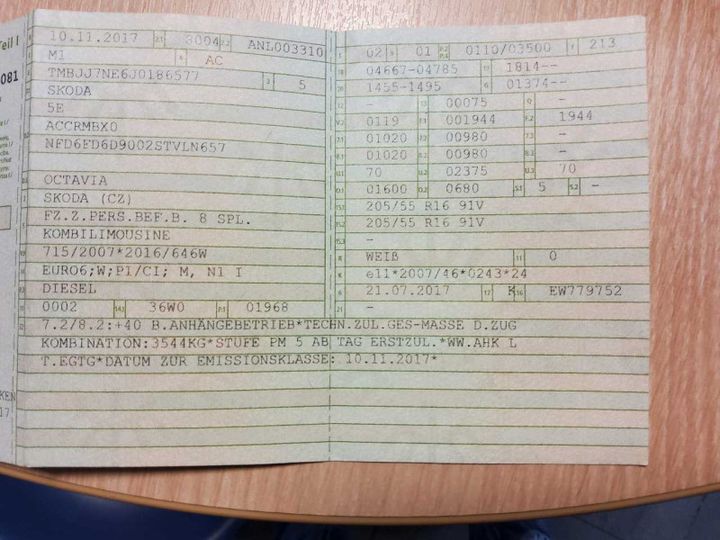 Teil I
081
KEN
17
10.11.2017 2.1 3004 2.2 ANL003310
M1 AC
TMBJJ7NE6J0186577 3 5
SKODA
5E
ACCRMBX0
NFD6FD6D9002STVLN657
OCTAVIA
SKODA (CZ)
FZ.Z.PERS.BEF.B. 8 SPL.
KOMBILIMOUSINE
715/2007*2016/646W
EURO6;W;PI/CI; M, N1 I
DIESEL
0002 14.1 36W0 P.1 01968
02 9 01 0110/03500 T 213
18 04667-04785 19 1814--
20 1455-1495 G 01374--
12 - 13 00075 Q -
0119 F.1 001944 F.2 1944
7.1 01020 7.2 00980 7.3 -
8.1 01020 8.2 00980 8.3 -
U.1 70 U.2 02375 U.3 70
O.1 01600 O.2 0680 S.1 5 S.2 -
15.1 205/55 R16 91V
15.2 205/55 R16 91V
15.3 -
R WEIß 11 0
K e11*2007/46*0243*24
6 21.07.2017 17 K 16 EW779752
21 -
7.2/8.2:+40 B.ANHÄNGEBETRIEB*TECHN.ZUL.GES-MASSE D.ZUG
KOMBINATION:3544KG*STUFE PM 5 AB TAG ERSTZUL.*WW.AHK L
T.EGTG*DATUM ZUR EMISSIONSKLASSE: 10.11.2017*